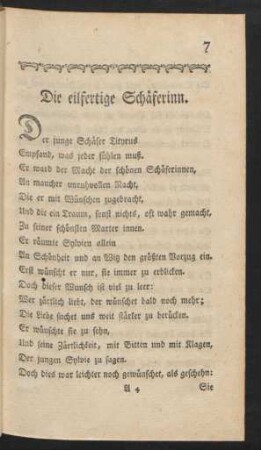 7
Die eilfertige Schäferinn.
Der junge Schäfer Tityrus
Empfand, was jeder fühlen muß.
Er ward der Macht der schönen Schäferinnen,
An mancher unruhvollen Nacht,
Die er mit Wünschen zugebracht,
Und die ein Traum, sonst nichts, oft wahr gemacht,
Zu seiner schönsten Marter innen.
Er räumte Sylvien allein
An Schönheit und an Witz den größten Vorzug ein.
Erst wünscht er nur, sie immer zu erblicken.
Doch dieser Wunsch ist viel zu leer:
Wer zärtlich liebt, der wünschet bald noch mehr;
Die Liebe suchet uns weit stärker zu berücken.
Er wünschte sie zu sehn,
Und seine Zärtlichkeit, mit Bitten und mit Klagen,
Der jungen Sylvie zu sagen.
Doch dies war leichter noch gewünschet, als geschehn:
A 4 Sie